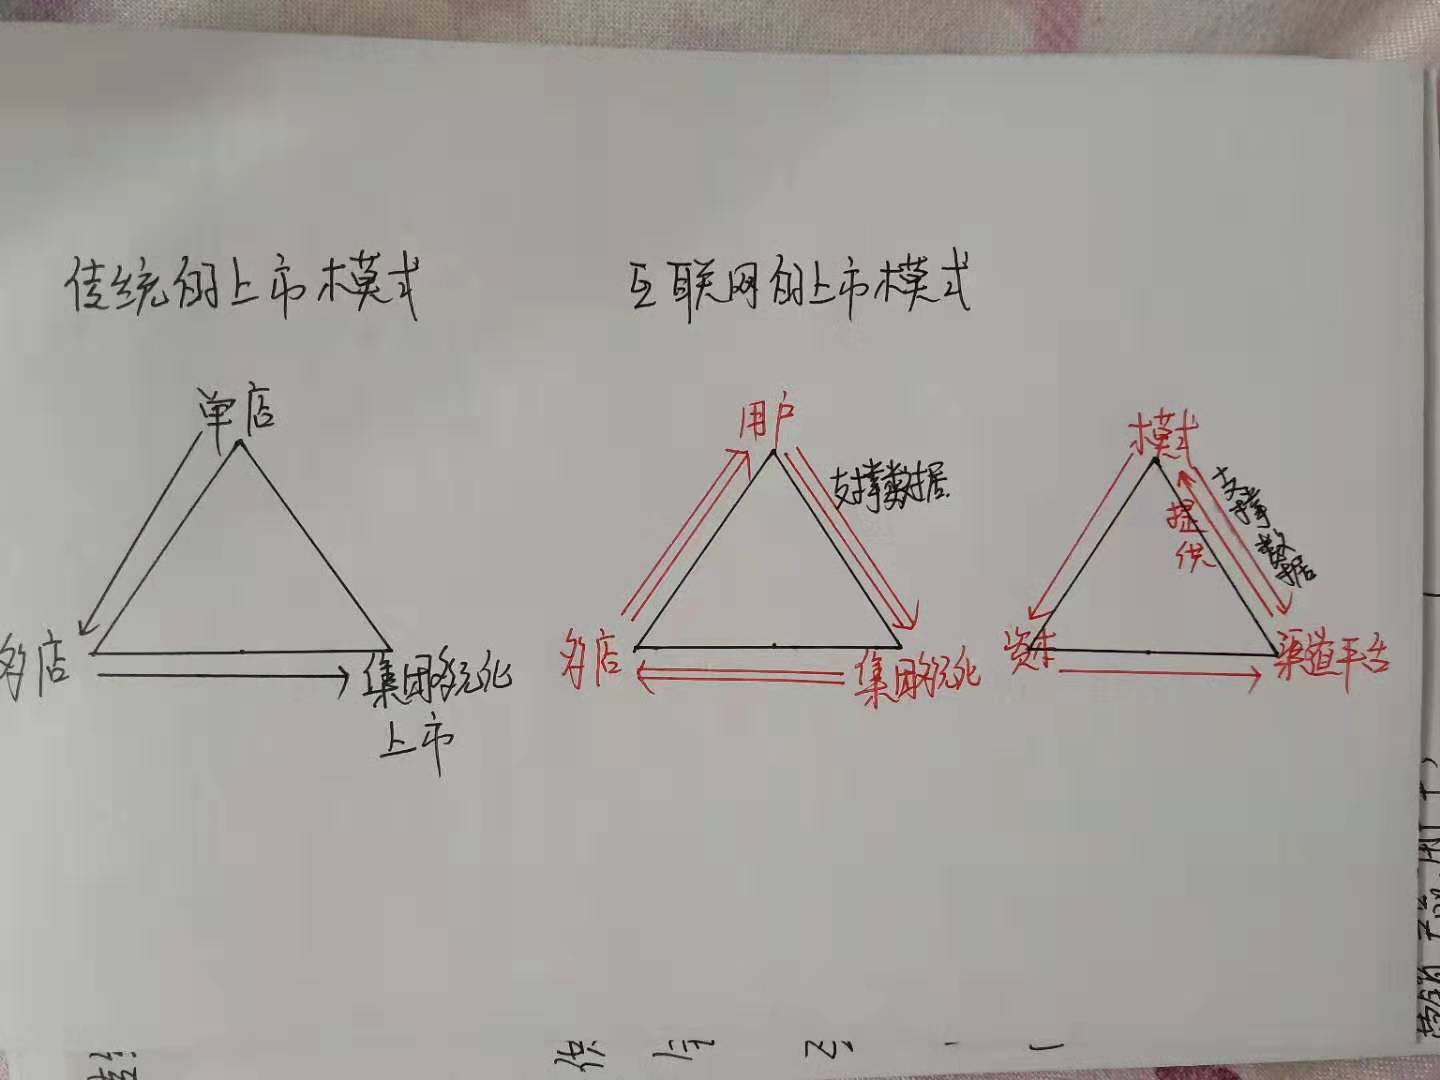 传统的上市模式
互联网的上市模式
单店
多店
集团多元化
上市
用户
支撑数据
多店
集团多元化
模式
提供
支撑数据
资本
渠道平台
供